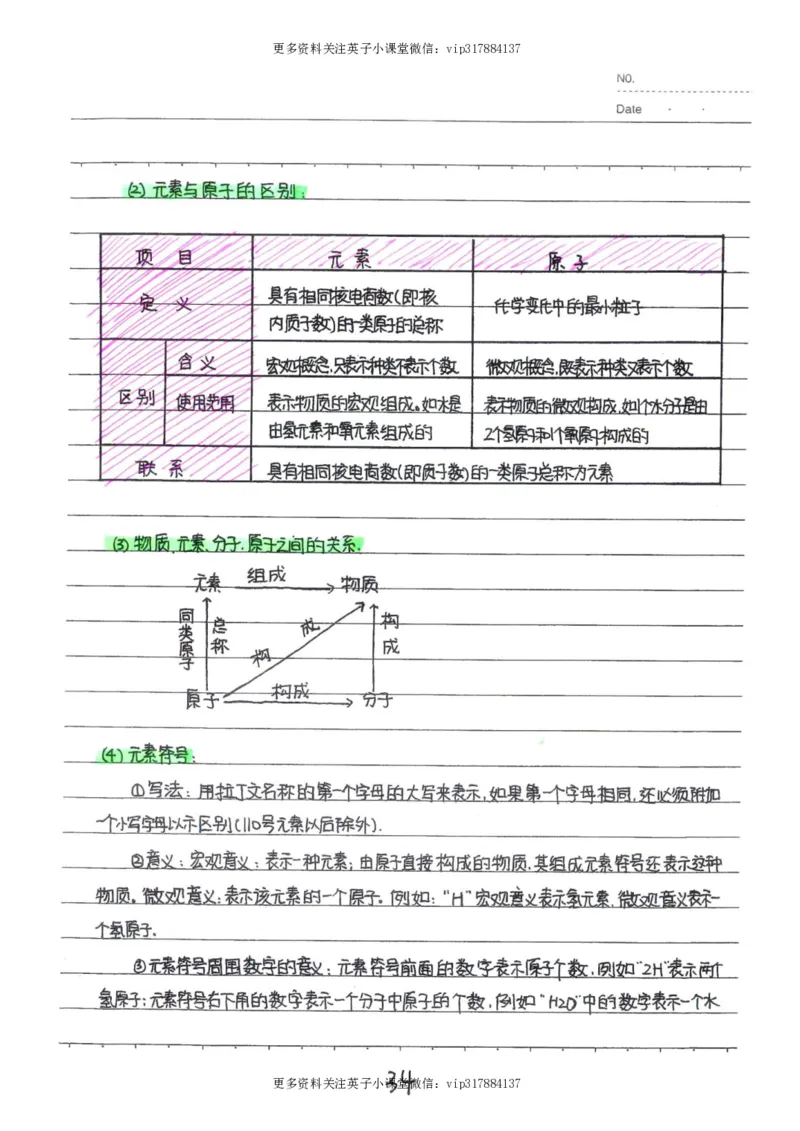 更多资料关注英子小课堂微信：vip317884137
NO.
Date
(2) 元素与原子的区别：
项目 元素 原子
定义 具有相同核电荷数(即核内质子数)的一类原子的总称 化学变化中的最小粒子
区别 含义 宏观概念,只表示种类不表示个数 微观概念,既表示种类又表示个数
使用范围 表示物质的宏观组成。如水是由氢元素和氧元素组成的 表示物质的微观构成,如1个水分子是由2个氢原子和1个氧原子构成的
联系 具有相同核电荷数(即质子数)的一类原子总称为元素
(3) 物质、元素、分子、原子之间的关系.
元素 组成 物质
同类原子 总称 构成 构成
原子 构成 分子
(4) 元素符号：
①写法：用拉丁文名称的第一个字母的大写来表示,如果第一个字母相同,还必须附加
一个小写字母以示区别(110号元素以后除外).
②意义：宏观意义：表示一种元素；由原子直接构成的物质,其组成元素符号还表示这种
物质。微观意义：表示该元素的一个原子。例如："H"宏观意义表示氢元素,微观意义表示一
个氢原子.
③元素符号周围数字的意义：元素符号前面的数字表示原子个数,例如"2H"表示两个
氢原子；元素符号右下角的数字表示一个分子中原子的个数,例如"H2O"中的数字表示一个水
34
更多资料关注英子小课堂微信：vip317884137